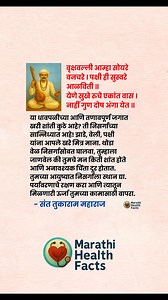 वृक्षवल्ली आम्हा सोयरे
वनचरे । पक्षी ही सुस्वरे
आळविती ॥
येणे सुखे रुचे एकांत वास ।
नाहीं गुण दोष अंगा येत ॥
या धावपळीच्या आणि तणावपूर्ण जगात
खरी शांती कुठे आहे? ती निसर्गाच्या
सान्निध्यात आहे! झाडे, वेली, पक्षी
यांना आपले खरे मित्र माना. थोडा
वेळ निसर्गासोबत घालवा, तुम्हाला
जाणवेल की तुमचे मन किती शांत होते
आणि अनावश्यक चिंता दूर होतात.
तुमच्या आयुष्यात निसर्गाला स्थान द्या.
पर्यावरणाचे रक्षण करा आणि त्यातून
मिळणारी ऊर्जा तुमच्या कामासाठी वापरा.
- संत तुकाराम महाराज
Marathi
Health
Facts